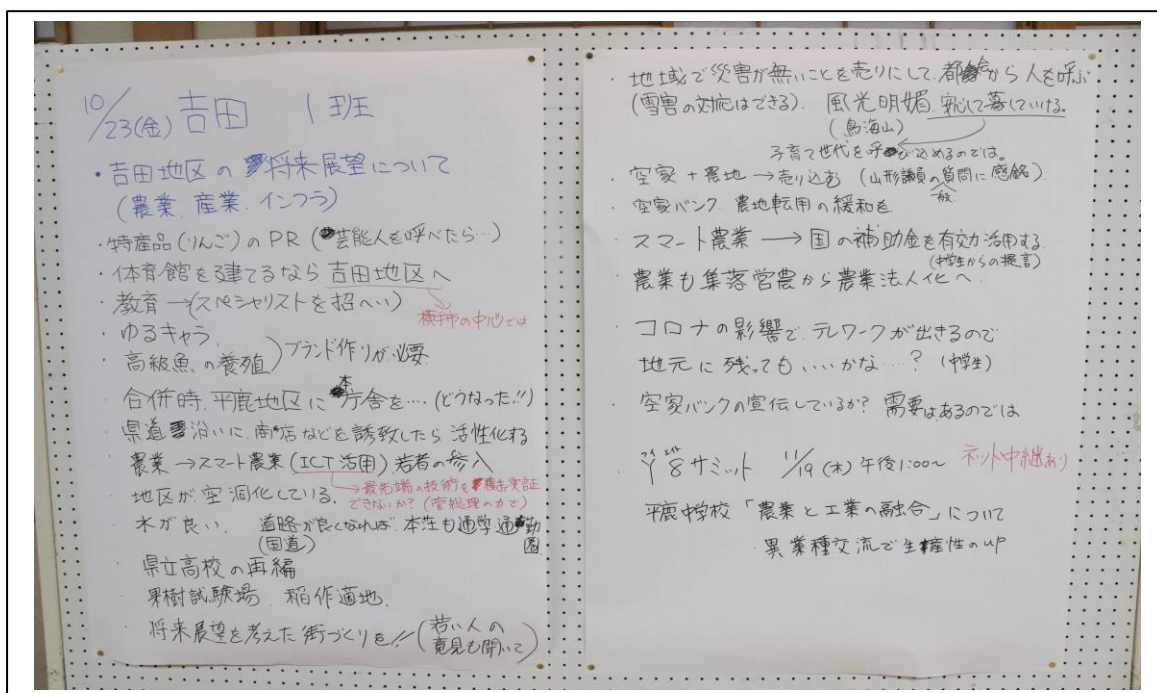 10/23(金) 吉田 1班
・吉田地区の将来展望について
(農業、産業、インフラ)
・特産品(りんご)のPR (芸能人を呼べたら…)
・体育館を建てるなら 吉田地区へ
横手市の中心では
・教育→(スペシャリストを招へい)
・ゆるキャラ
・高級魚の養殖 ) ブランド作りが必要
・合併時、平鹿地区に本庁舎を…(どうなった!!)
・県道沿いに、商店などを誘致したら 活性化する
・農業→スマート農業 (ICT活用) 若者の参入
→最先端の技術を実証
できないか? (菅総理の力で)
・地区が空洞化している。
・水が良い 道路が良くなれば、本荘も通学通勤
(国道) 圏
・県立高校の再編
・果樹試験場 稲作適地、
・将来展望を考えた街づくりを!! (若い人の
意見も聞いて)
・地域で災害が無いことを売りにして、都会から人を呼ぶ
(雪害の対応はできる)、風光明媚、安心して暮していける。
(鳥海山)
子育て世代を呼び込めるのでは。
・空家+農地→売り込む (山形議員の一般質問に感銘)
・空家バンク、農地転用の緩和を
・スマート農業→国の補助金を有効活用する
(中学生からの提言)
・農業も集落営農から農業法人化へ
・コロナの影響で、テレワークが出きるので
地元に残っても、いいかな…? (中学生)
・空家バンクの宣伝しているか? 需要はあるのでは
・Y8サミット 11/19(木) 午後1:00〜 ネット中継あり
ワイ エイト
平鹿中学校「農業と工業の融合」について
異業種交流で生産性のup